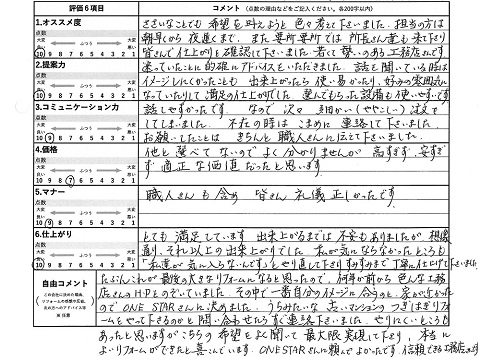 評価6項目
コメント (点数の理由などをご記入ください。各200字以内)
1.オススメ度
点数
大変良い ふつう 大変悪い
10 9 8 7 6 5 4 3 2 1
ささいなことでも 希望を叶えようと 色々考えて下さいました。担当の方は
朝早から 夜遅くまで、また要所要所では 所長さん達も来て下さり
皆さんで仕上がりを確認して下さいました。若くて 勢いのある工務店さんです
2.提案力
点数
大変良い ふつう 大変悪い
10 9 8 7 6 5 4 3 2 1
迷っていたことに的確にアドバイスをいただきました。話を聞いている時は
イメージしにくかったことも 出来上がったら 使い易かったり、好みの雰囲気に
なっていたりして満足の仕上がりでした。選んでもらった設備も使いやすいです
3.コミュニケーション力
点数
大変良い ふつう 大変悪い
10 9 8 7 6 5 4 3 2 1
話しやすかったです。なので 次々 細かい(ややこしい)注文を
してしまいました。不在の時は こまめに 連絡して下さいました。
お願いしたことは きちんと 職人さんに伝えて下さいました。
4.価格
点数
大変良い ふつう 大変悪い
10 9 8 7 6 5 4 3 2 1
他と比べてないのでよく分かりませんが 高すぎず、安すぎ
ず 適正な価値だったと思います。
5.マナー
点数
大変良い ふつう 大変悪い
10 9 8 7 6 5 4 3 2 1
職人さんも含め 皆さん 礼儀正しかったです。
6.仕上がり
点数
大変良い ふつう 大変悪い
10 9 8 7 6 5 4 3 2 1
とても満足しています。出来上がるまでは 不安もありましたが 想像
通り、それ以上の出来上がりでした。私が気にならなかったところも
「私達が気に入らないんです」とやり直して下さり すみずみまで 丁寧に仕上げて下さいました
自由コメント
この会社に決めた理由、
リフォームでの感想や要望、
次の方へのアドバイス等
※任意
たぶん、これが最後の大きなリフォームになると思ったので、何年か前から 色んな工務
店さんのHPをのぞいていました。その中で一番自分のイメージに合うのと、家が近かった
ので ONE STARさんに決めました。うちみたいな 古いマンションの つぎはぎリフォ
ームをやって下さるのかと問い合わせたらすぐ連絡下さいました。やりにくいところも
あったと思いますがこちらの希望をよく聞いて 最大限 実現して下さり、本当に
よいリフォームができたと喜んでいます。ONE STARさんに頼んでよかったです。信頼できる工務店さんです